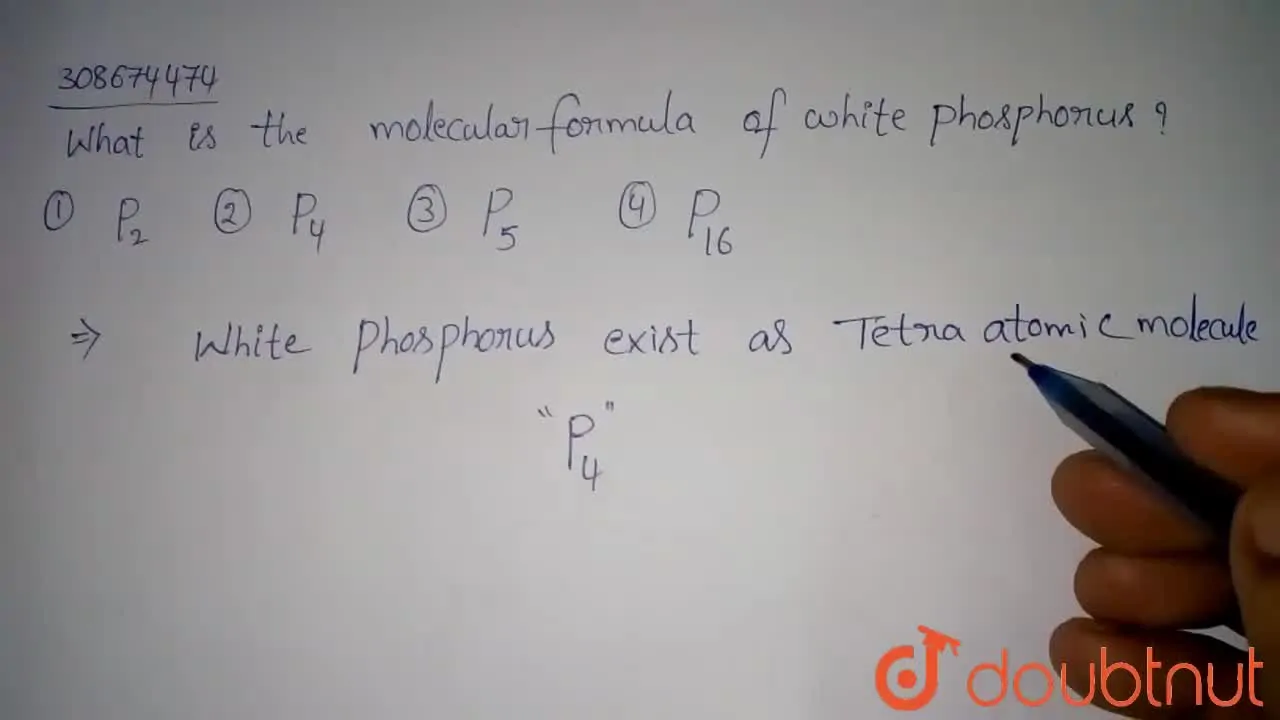 308674474
What is the molecular formula of white phosphorus?
① P₂ ② P₄ ③ P₅ ④ P₁₆
⇒ White Phosphorus exist as Tetra atomic molecule
"P₄"
doubtnut